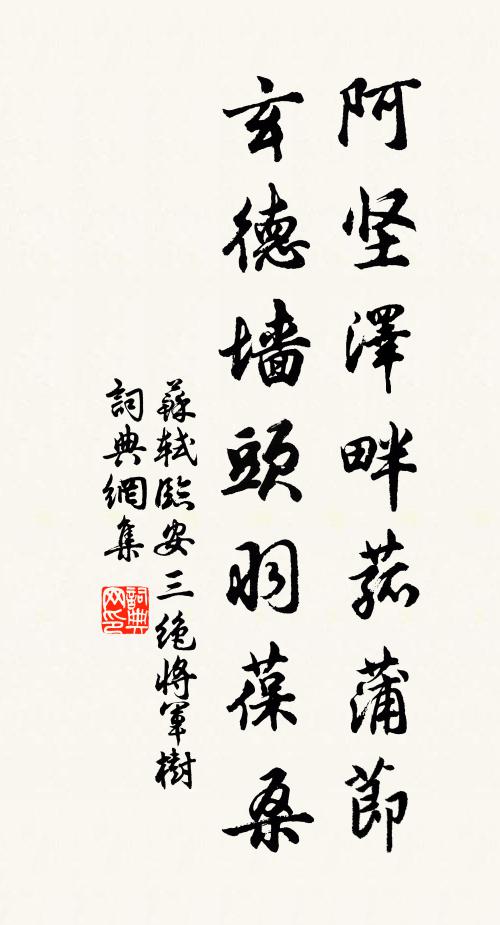 阿坚澤畔菰蒲節
玄德墙頭羽葆桑
蘇軾臨安三絶將軍樹
詞典網集
詞典网印